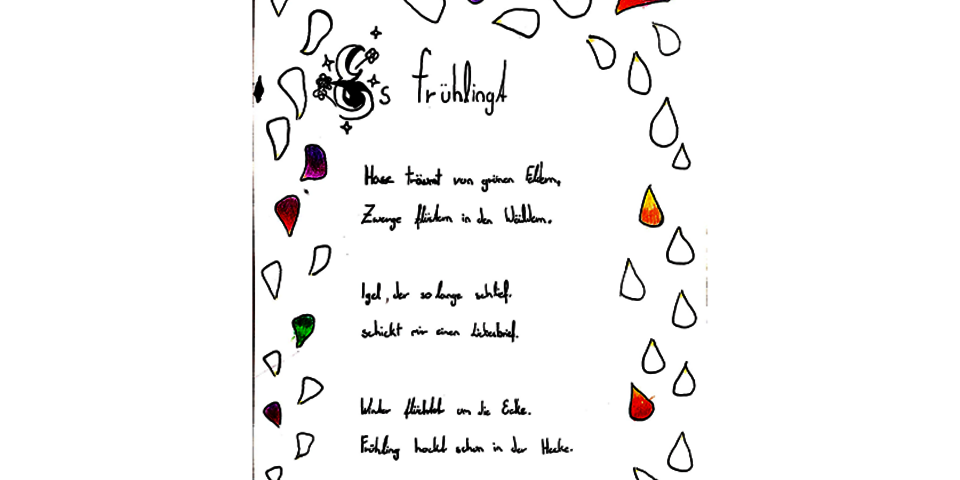 Es frühlingt
Hase träumt von grünen Feldern,
Zwerge flüstern in den Wäldern.
Igel, der so lange schlief.
schickt mir einen Liebesbrief.
Winter flüchtet um die Ecke.
Frühling hockt schon in der Hecke.